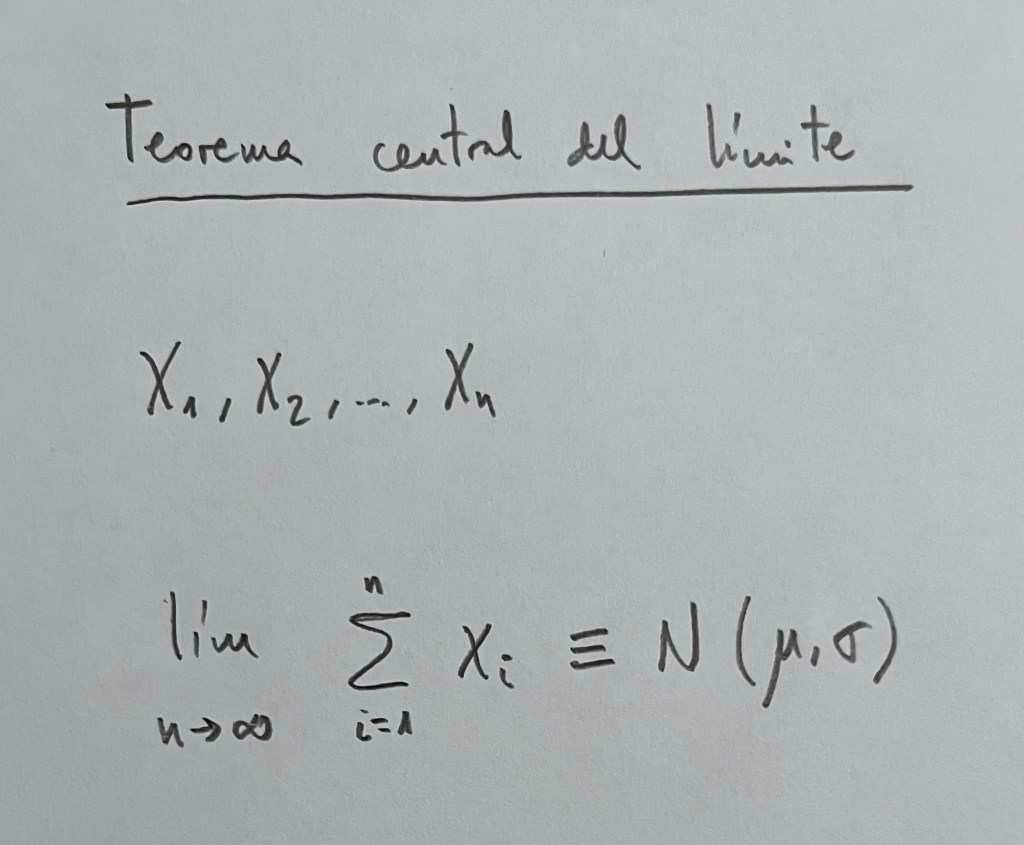 Teorema central del límite
X₁, X₂, ..., Xₙ
lím n→∞ ∑ i=1 n Xᵢ ≡ N (μ, σ)